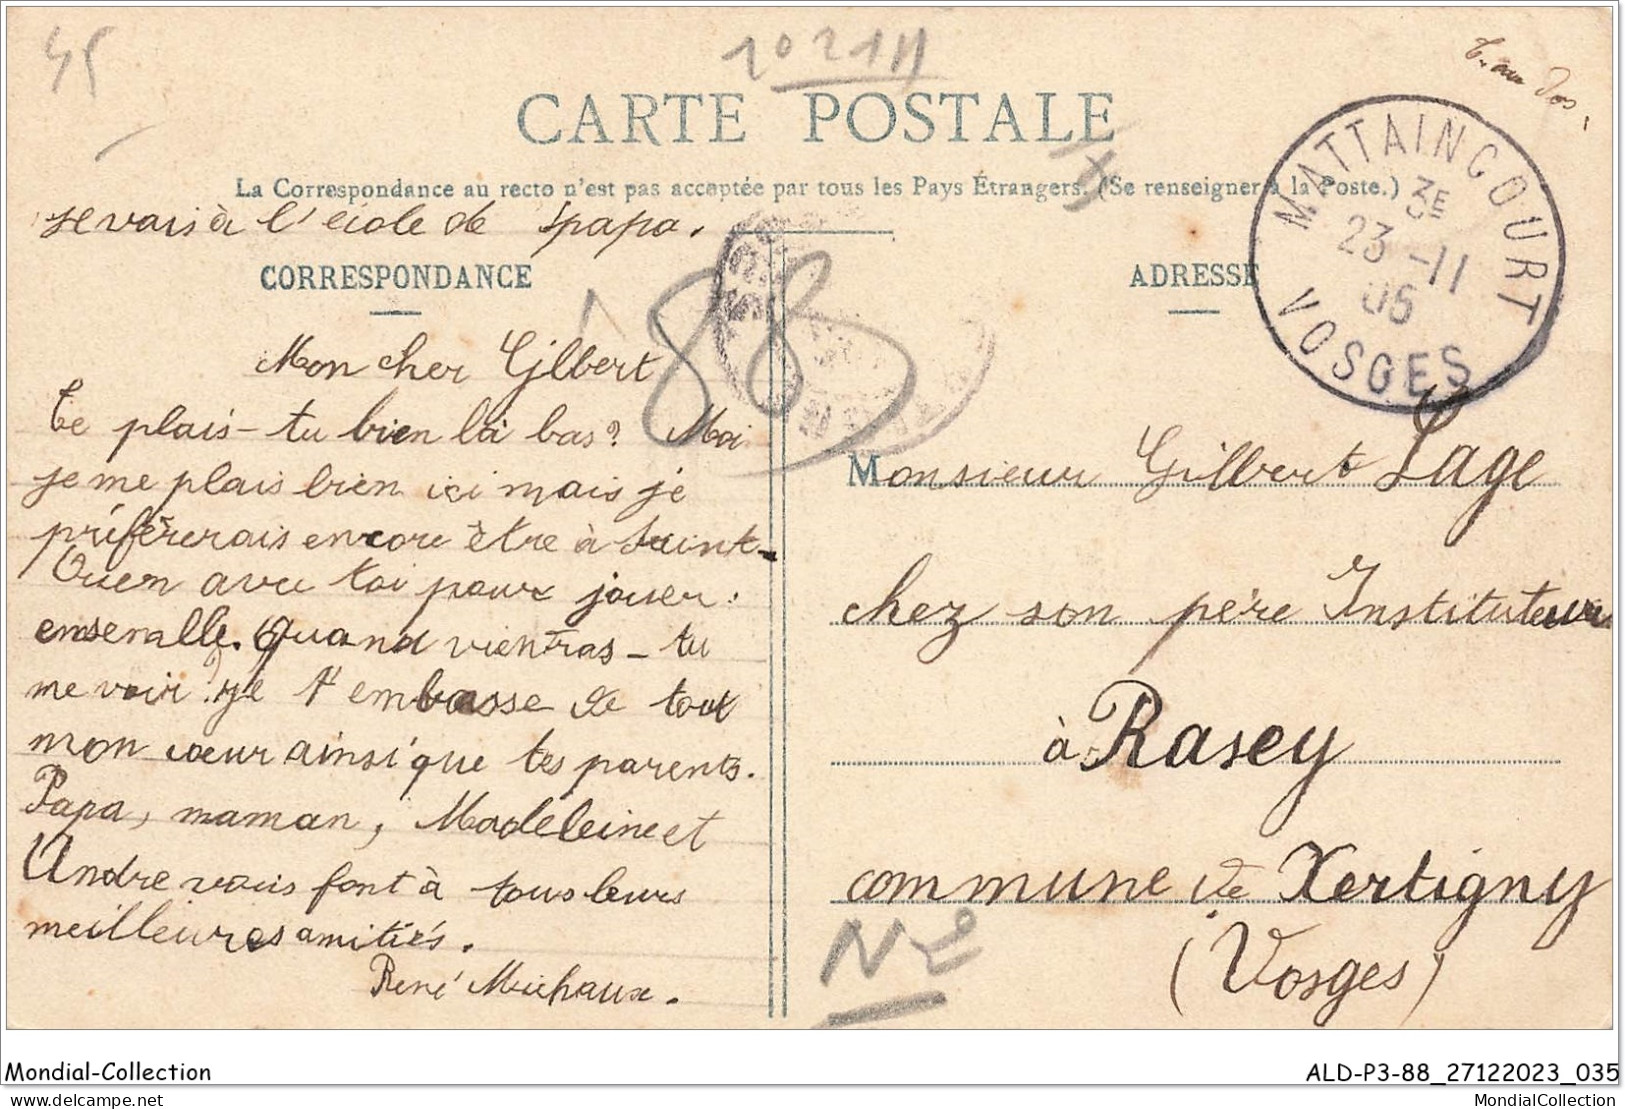 45
10211
T. au Dos.
CARTE POSTALE
La Correspondance au recto n'est pas acceptée par tous les Pays Étrangers. (Se renseigner à la Poste.)
MATTAINCOURT
3E
23 -11
05
VOSGES
je vais à l'école de papa.
CORRESPONDANCE
ADRESSE
88
Mon cher Gilbert
Te plais-tu bien là bas? Moi
je me plais bien ici mais je
préfèrerais encore être à Saint-
Ouen avec toi pour jouer
ensemalle. Quand vientras-tu
me voir? Je t'embasse de tout
mon cœur ainsi que tes parents.
Papa, maman, Madeleine et
Andre vous font à tous leurs
meilleures amitiés.
René Michaux.
Monsieur Gilbert Lage
chez son père Instituteur
à Rasey
commune de Xertigny
(Vosges)
N2
Mondial-Collection
ALD-P3-88_27122023_035
delcampe.net
MondialCollection